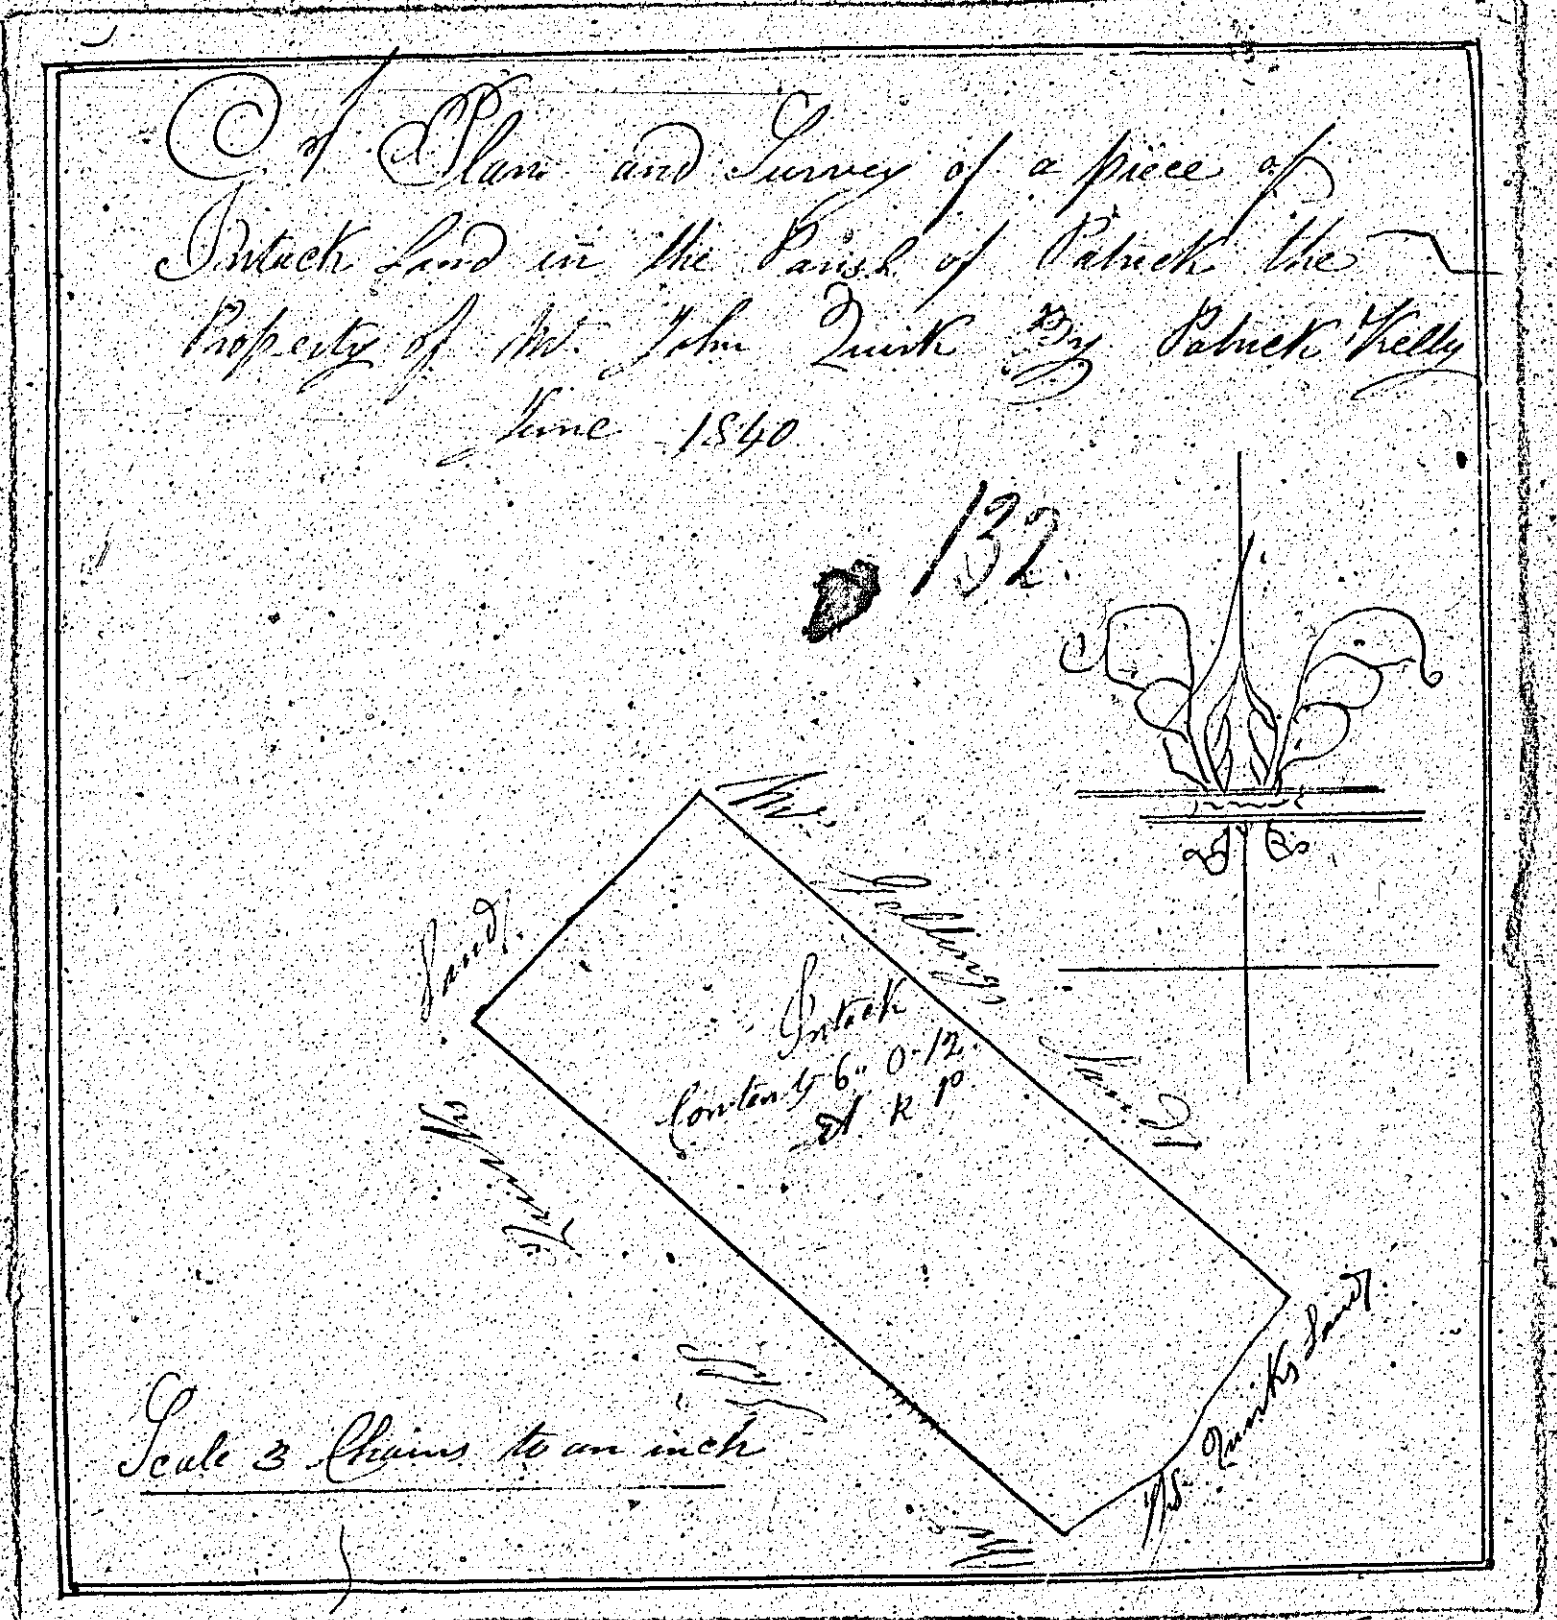 A Plan and Survey of a piece of
Intack Land in the Parish of Patrick the
Property of Mr. John Quirk By Patrick Kelly
June 1840
132.
Mr. Gellings Land
Land.
Quirks
Intack
Contents 6" 0-12
A R P
Mr. Quirks Land.
Scale 3 Chains to an inch